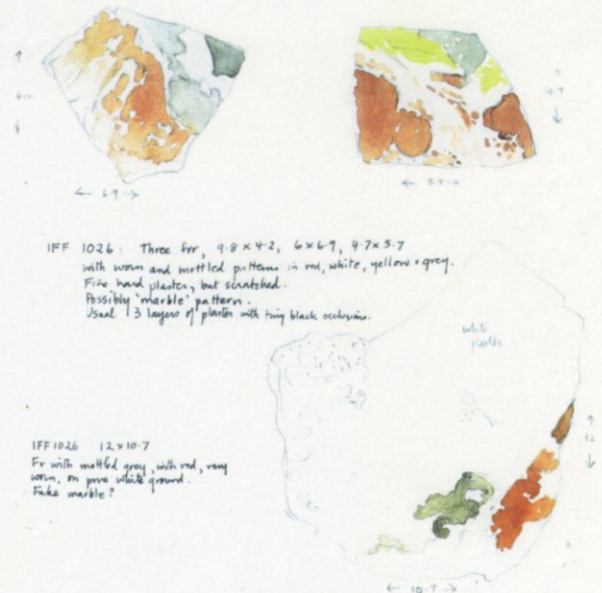 6
← 6.9 →
4.7
← 5.7 →
IFF 1026: Three frr, 9.8 x 4.2, 6 x 6.9, 4.7 x 5.7
with worn and mottled patterns in red, white, yellow + grey.
Fine hard plaster, but scratched.
Possibly 'marble' pattern.
Usual 3 layers of plaster with tiny black occlusions.
white
plaster
12
IFF 1026 12 x 10.7
Fr with mottled grey, with red, very
worn, on pure white ground.
Fake marble?
← 10.7 →